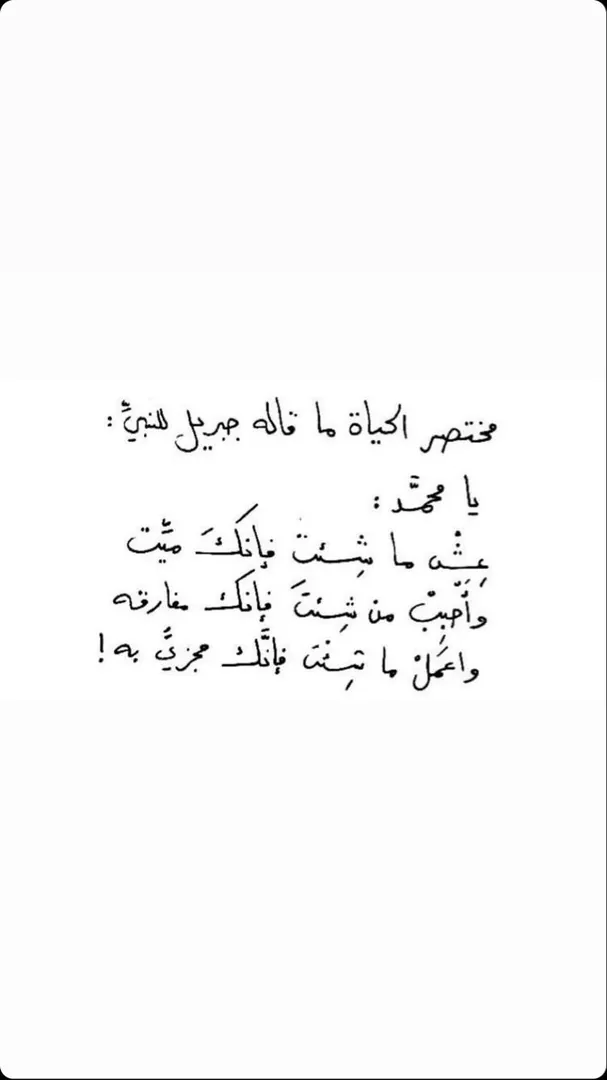 مختصر الحياة ما قاله جبريل للنبيِّ :
يا محمَّد :
عِشْ ما شِئتَ فإنكَ ميِّت
وأَحْبِبْ من شِئتَ فإنكَ مفارقه
واعمَلْ ما شِئْتَ فإنَّك مجزيٌّ به !